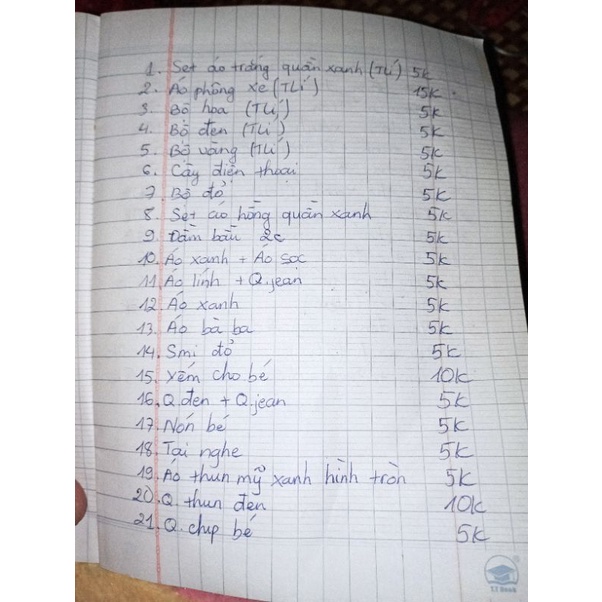 1. Set áo trắng quần xanh (TLí) 5k
2. Áo phông xe (TLí) 15k
3. Bộ hoa (TLí) 5k
4. Bộ đen (TLí) 5k
5. Bộ vàng (TLí) 5k
6. Cây điện thoại 5k
7. Bộ đỏ 5k
8. Set áo hồng quần xanh 5k
9. Đầm bầu 2c 5k
10. Áo xanh + Áo sọc 5k
11. Áo lính + Q.jean 5k
12. Áo xanh 5k
13. Áo bà ba 5k
14. Smi đỏ 5k
15. Yếm cho bé 10k
16. Q.đen + Q.jean 5k
17. Nón bé 5k
18. Tai nghe 5k
19. Áo thun mỹ xanh hình tròn 5k
20. Q. thun đen 10k
21. Q. chip bé 5k